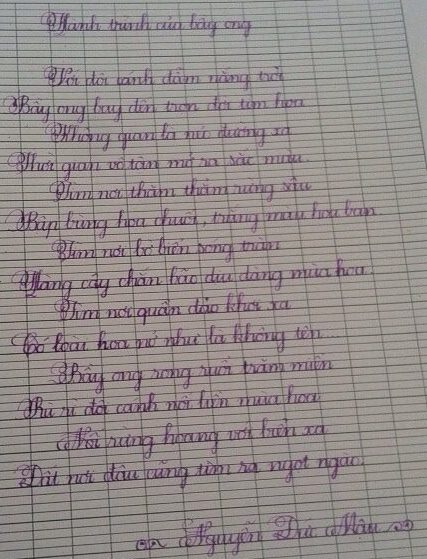 Hành trình của bầy ong
Với đôi cánh đẫm nắng trời
Bầy ong bay đến trọn đời tìm hoa
Không gian là nẻo đường xa
Thời gian vô tận mở ra sắc màu.
Tìm nơi thăm thẳm rừng sâu
Bập bùng hoa chuối, trắng màu hoa ban
Tìm nơi bờ biển sóng tràn
Hàng cây chắn bão dịu dàng mùa hoa.
Tìm nơi quần đảo khơi xa
Có loài hoa nở như là không tên...
Bầy ong rong ruổi trăm miền
Rù rì đôi cánh nối liền mùa hoa
Nối rừng hoang với biển xa
Đất nơi đâu cũng tìm ra ngọt ngào.
Nguyễn Đức Mậu